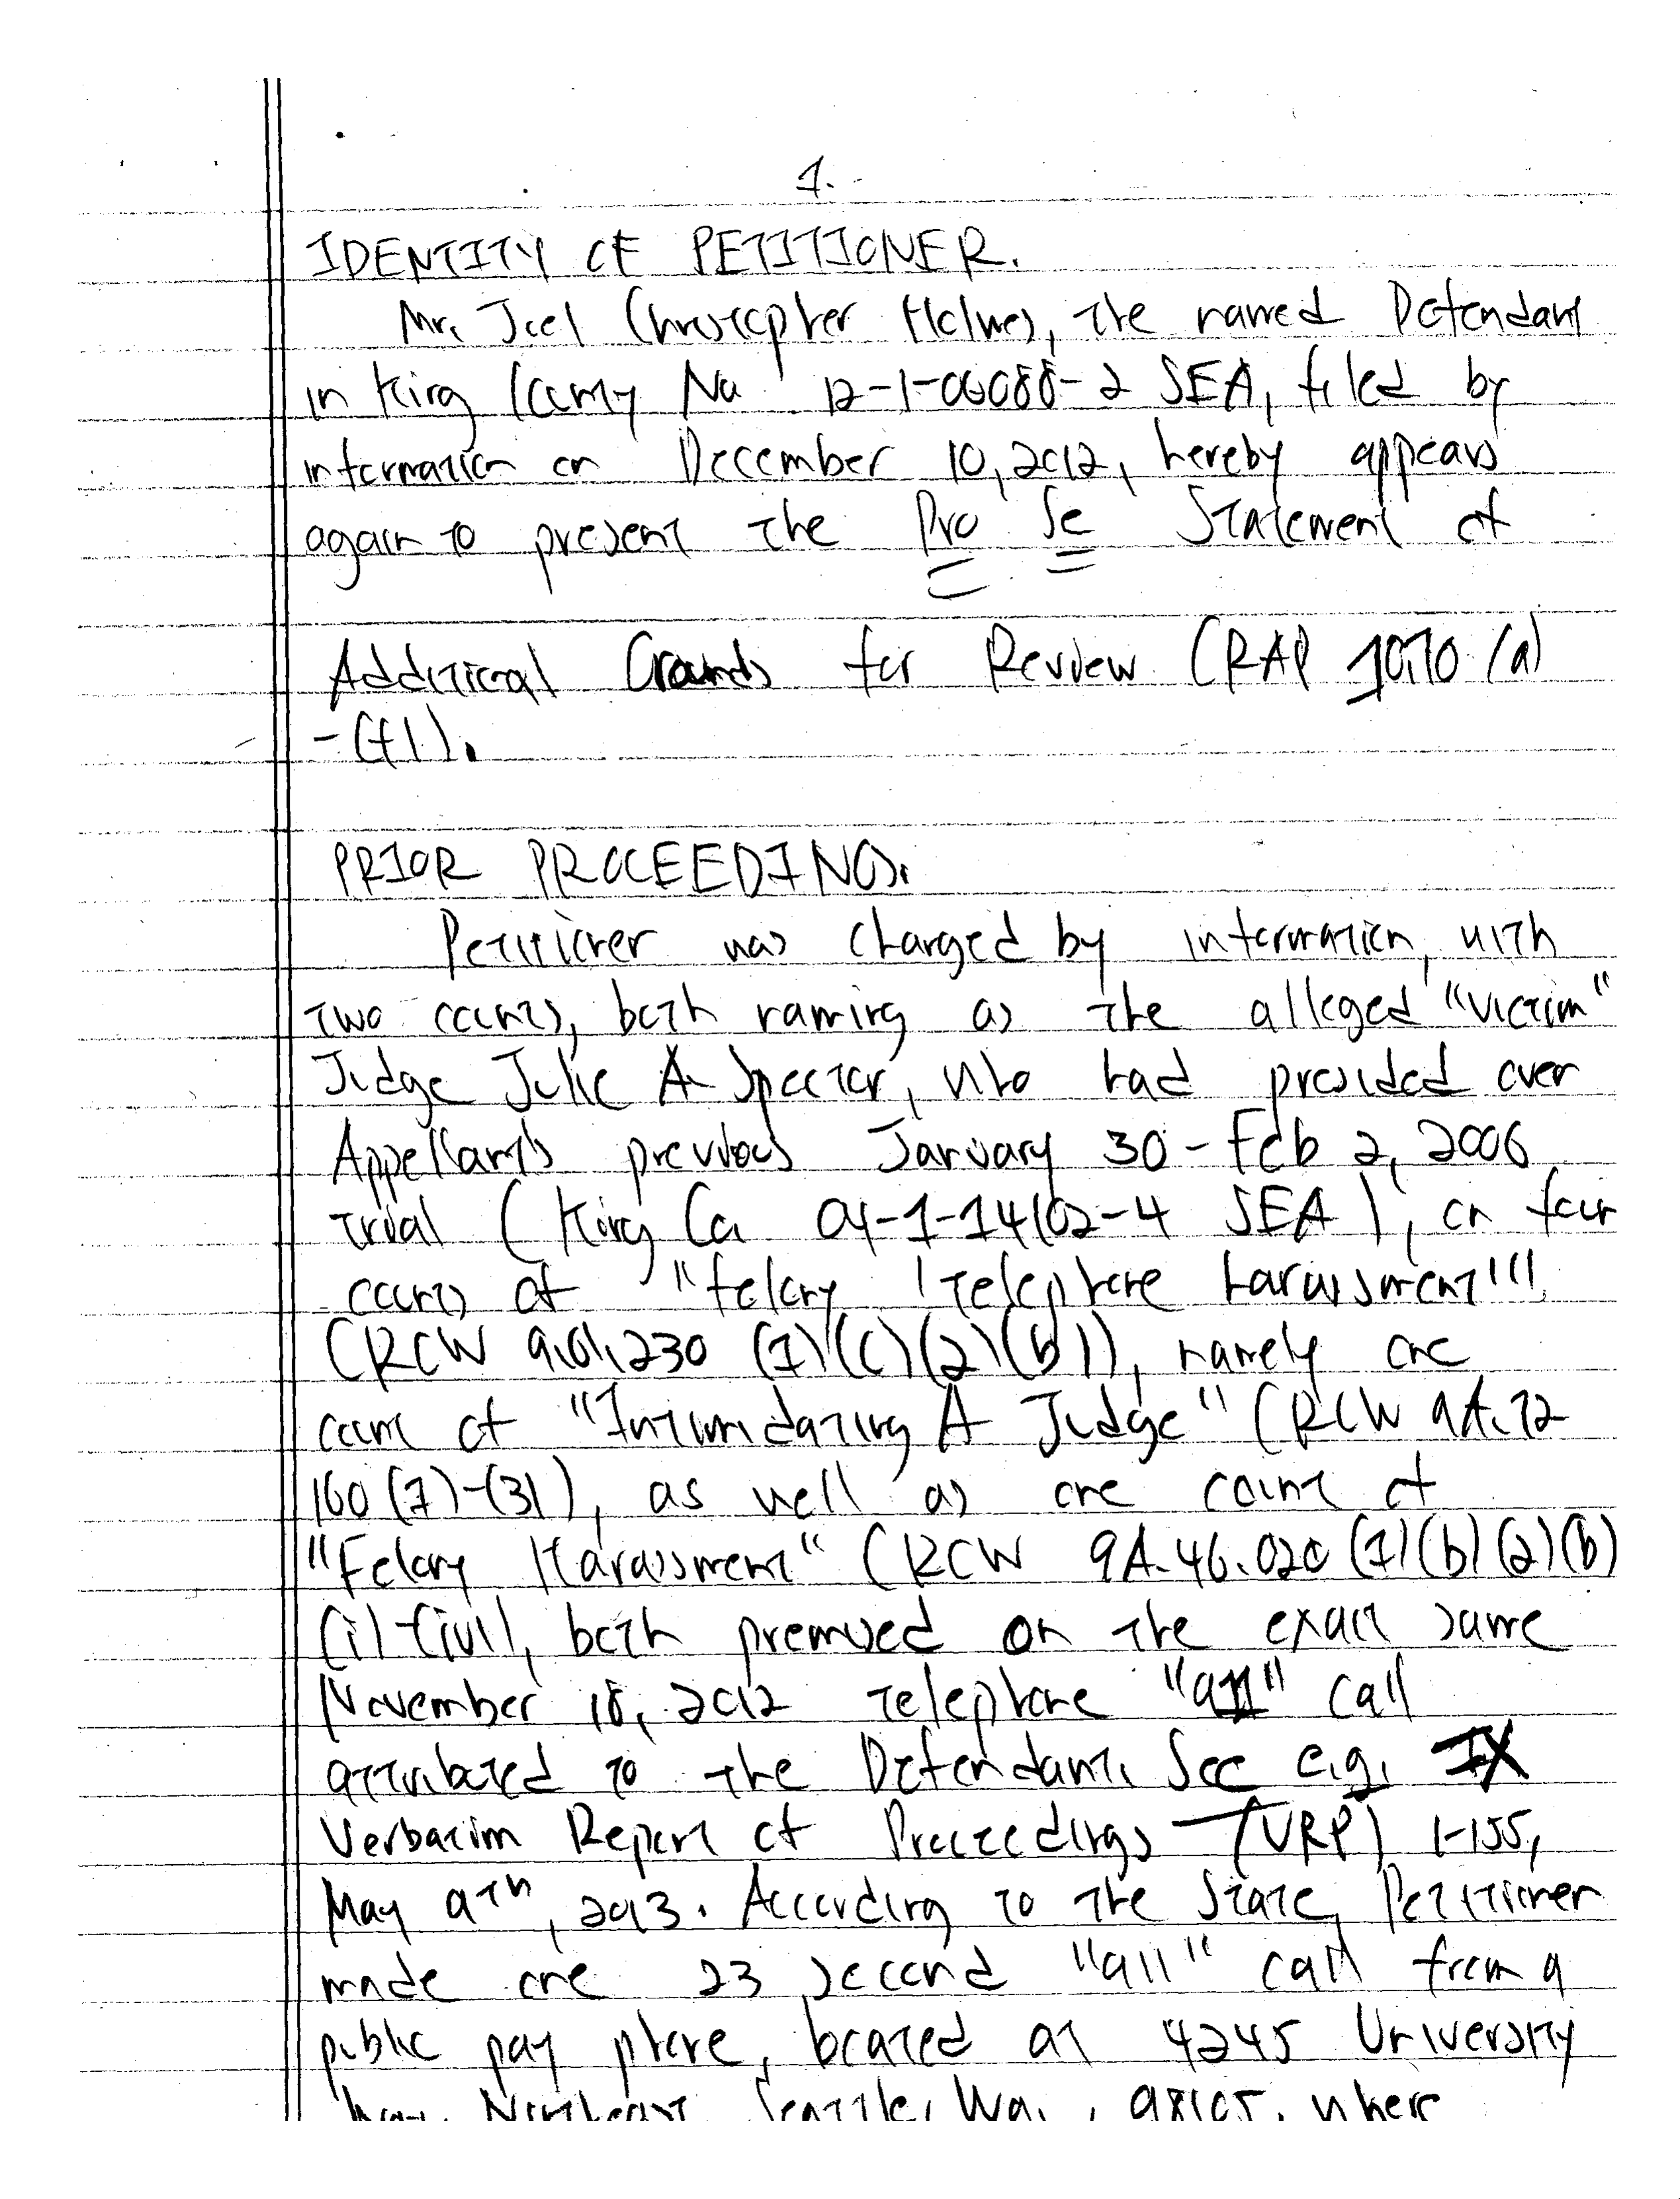 1.
IDENTITY OF PETITIONER.
Mr. Joel Christopher Holmes, the named Defendant
in King County No 12-1-06088-2 SEA, filed by
information on December 10, 2012, hereby appears
again to present the Pro Se Statement of
Additional Grounds for Review (RAP 10.10 (a)
-(f)).
PRIOR PROCEEDINGS.
Petitioner was charged by information, with
two counts, both naming as the alleged "victim"
Judge Julie A. Spector, who had presided over
Appellant's previous January 30 - Feb 2, 2006
trial (King Co 04-1-14102-4 SEA), on four
counts of "felony 'telephone harassment'"
(RCW 9.61.230 (1)(c)(2)(b)), namely one
count of "Intimidating A Judge" (RCW 9A.72
160 (1)-(3)), as well as one count of
"Felony Harassment" (RCW 9A.46.020 (1)(b)(2)(b)
both premised on the exact same
November 18, 2012 telephone "911" call
attributed to the Defendant. See e.g. IX
Verbatim Report of Proceedings (VRP) 1-155,
May 9th, 2013. According to the State, Petitioner
made one 23 second "911" call from a
public pay phone, located at 4245 University
Way Northeast Seattle, Wa., 98105, where